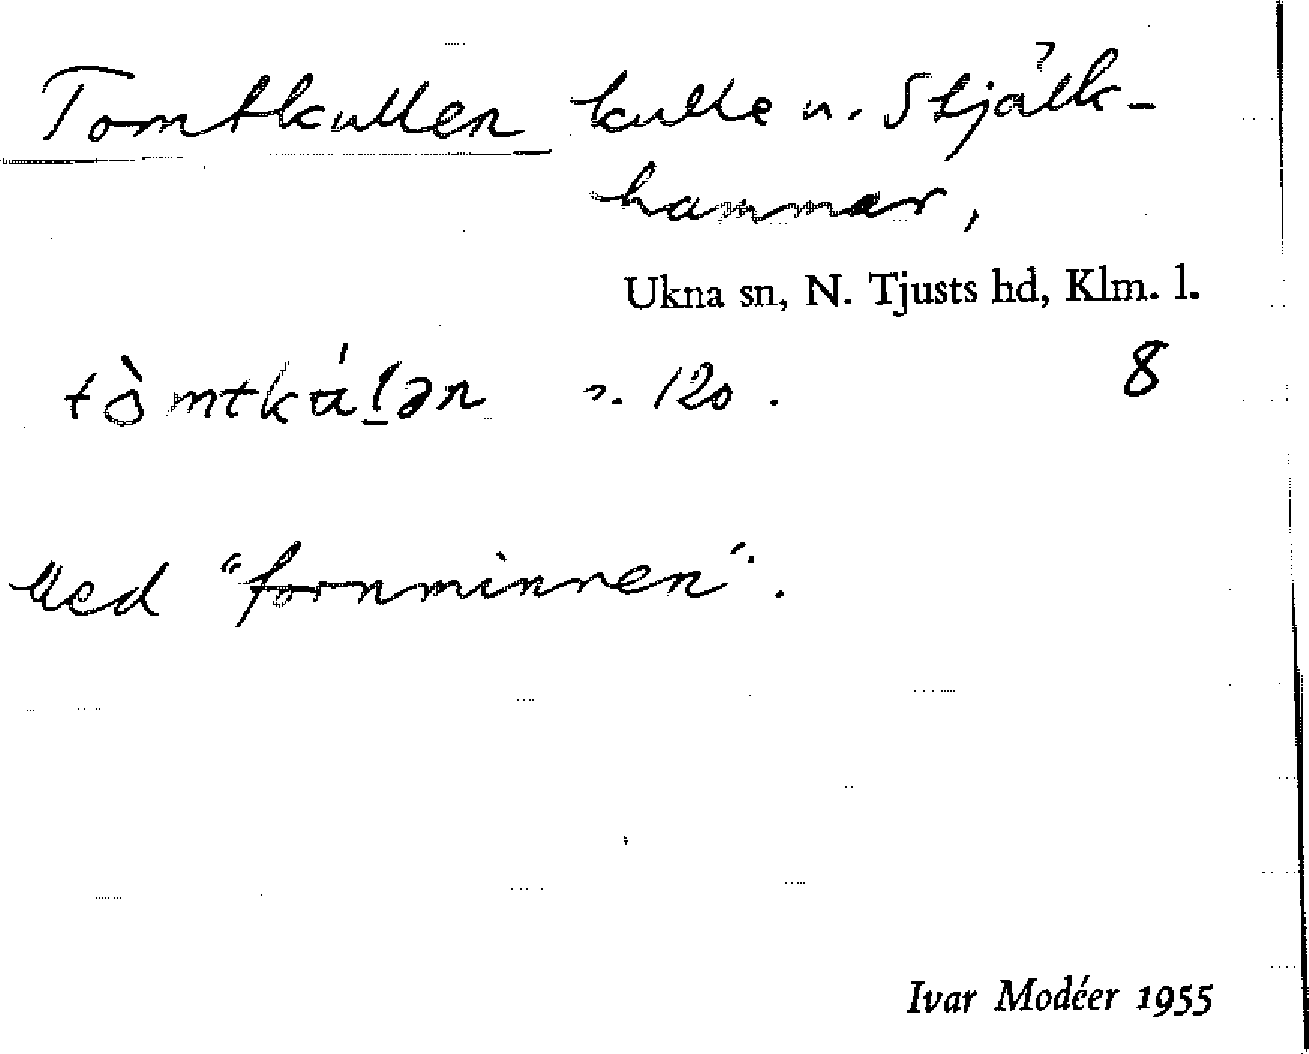 Tomtkullen kulle n. Stjälk-
hammar,
Ukna sn, N. Tjusts hd, Klm. l.
8
Med "fornminnen".
Ivar Modéer 1955